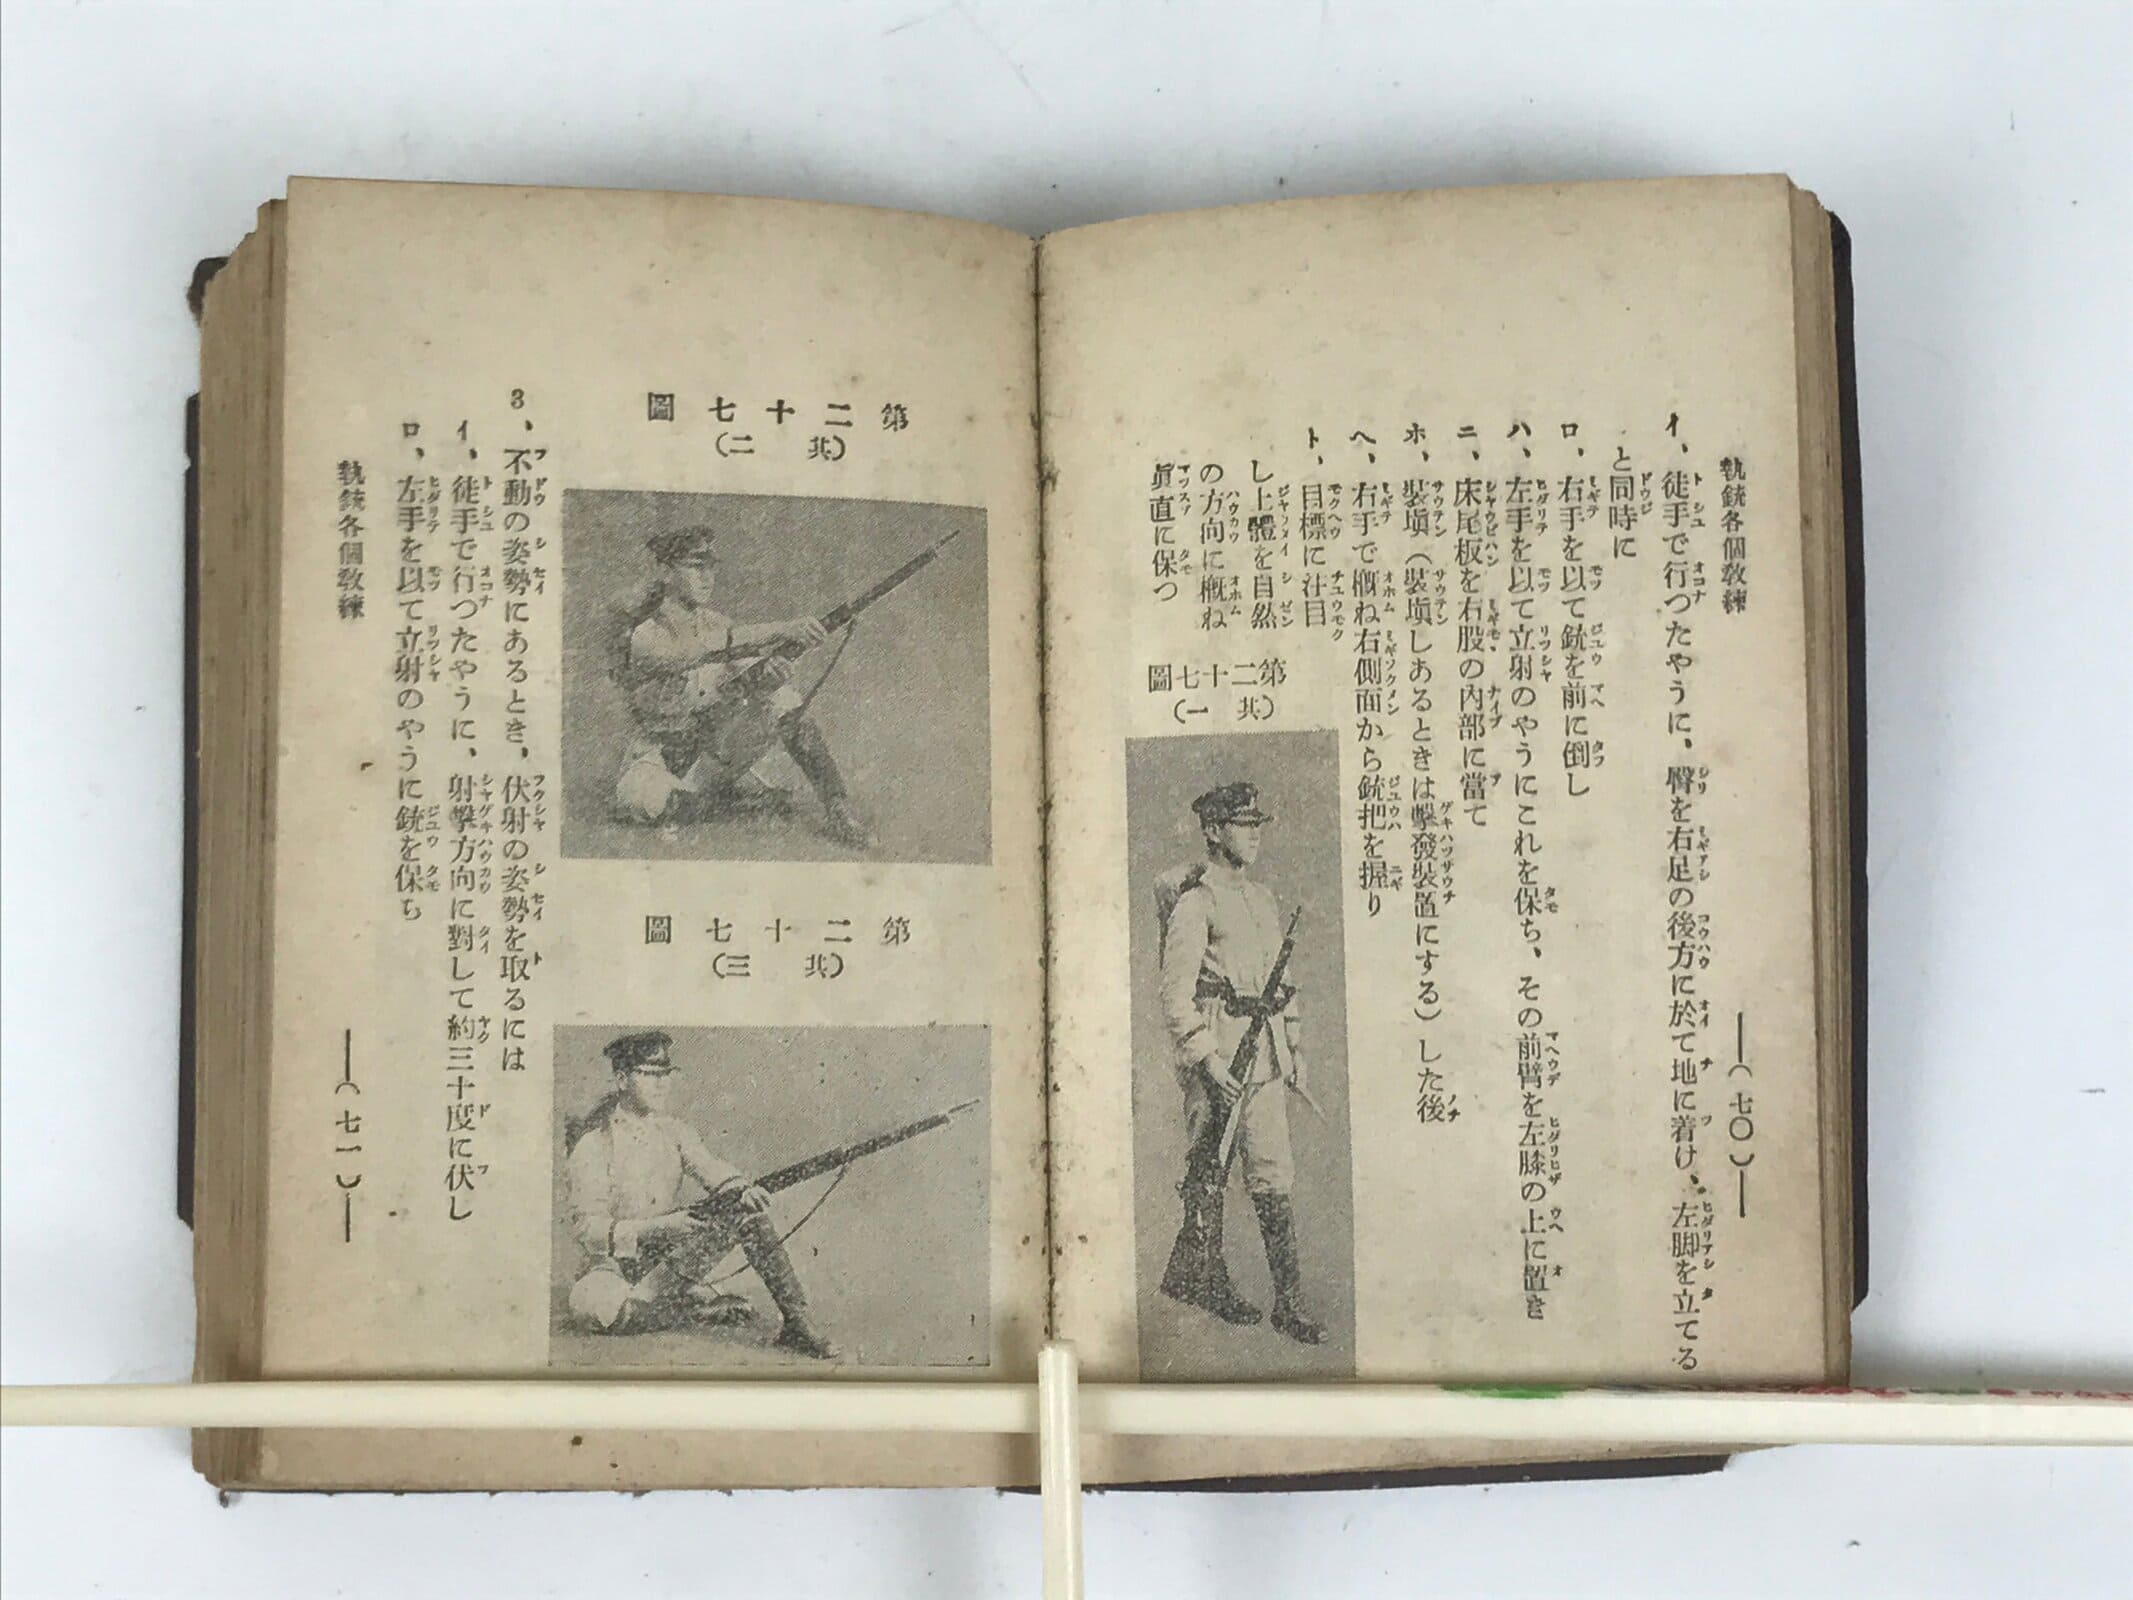 執銃各個教練
(七〇)
イ、徒手で行つたやうに、臀を右足の後方に於て地に着け、左脚を立てる
と同時に
ロ、右手を以て銃を前に倒し
ハ、左手を以て立射のやうにこれを保ち、その前臂を左膝の上に置き
ニ、床尾板を右股の內部に當て
ホ、裝塡(裝塡しあるときは擊發裝置にする)した後
ヘ、右手で槪ね右側面から銃把を握り
ト、目標に注目
し上體を自然
の方向に槪ね
眞直に保つ
第二十七圖
(其一)
第二十七圖
(其二)
第二十七圖
(其三)
3、不動の姿勢にあるとき、伏射の姿勢を取るには
イ、徒手で行つたやうに、射擊方向に對して約三十度に伏し
ロ、左手を以て立射のやうに銃を保ち
執銃各個教練
(七一)